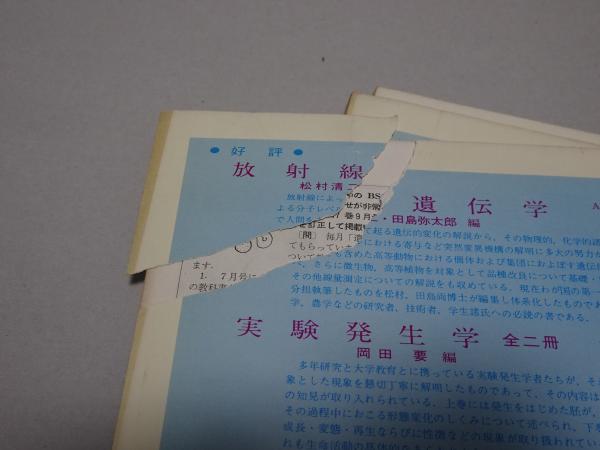 ● 好 評 ●
放 射 線
遺 伝 学
松村清二
・田島弥太郎 編
放射線によっ
よる分子レベル
で人間を
て起る遺伝的変化の解説から、その物理的、化学的諸
における寄与など突然変異機構の解明に多大の努力が
も含めた高等動物における個体および集団におよぼす遺伝
さらに微生物、高等植物を対象として品種改良について基礎・
その他線量測定についての解説をも収めている。現在わが国の第一
分担執筆したものを松村、田島両博士が編集し体系化したものであ
学、農学などの研究者、技術者、学生諸氏への必読の書である。
やの BS
せが非常
巻9月
を訂正して掲載
〔問〕 毎月「遺
てもらってい
ついて
ます.
1. 7月号に
の教科書
実 験 発 生 学 全二冊
岡 田 要 編
多年研究と大学教育とに携っている実験発生学者たちが、そ
象とした現象を懇切丁寧に解明したものであって、その内容は
の知見が取り入れられている。上巻には発生をはじめた胚が、
その過程中におこる形態変化のしくみについて述べられ、下
成長・変態・再生ならびに性徴などの現象が取り扱われてい
れも生命活動の具体的な